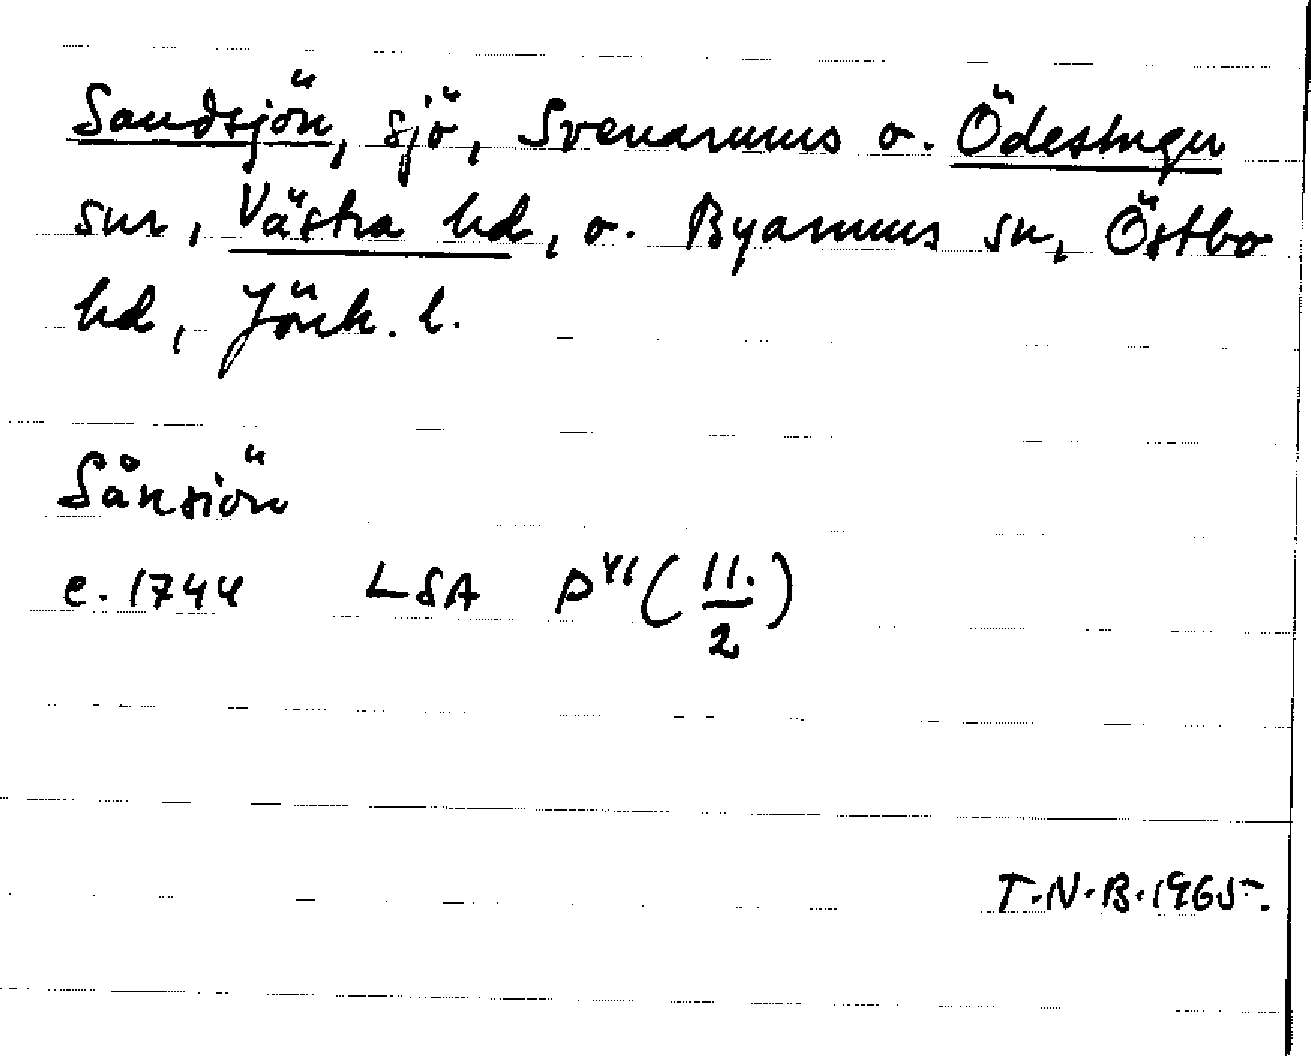 Sandsjön, sjö, Svenarums o. Ödestugu
snr, Västra hd, o. Byarums sn, Östbo
hd, Jönk. l.
Sånsiön
c. 1744 LSA P VI (11./2)
T.N.B. 1965.